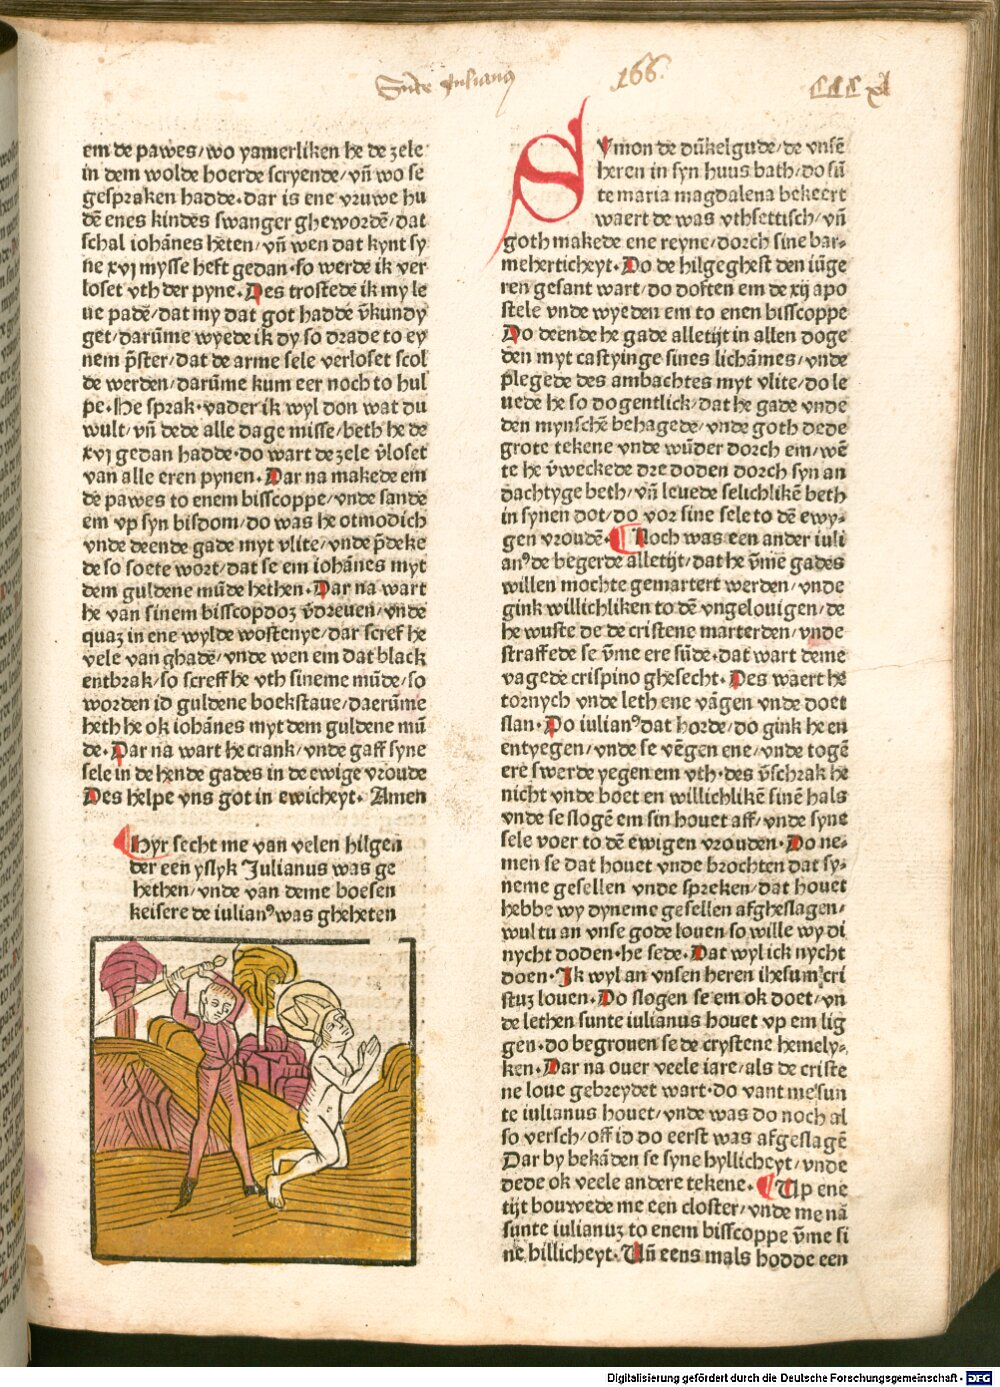 Sūte Julianus
166.
CCCxl
em de pawes/wo yamerliken he de zele
in dem wolde hoerde scryende/vñ wo se
gespraken hadde·dar is ene vruwe hu
dē enes kindes swanger ghewordē/dat
schal iohānes heten/vñ wen dat kynt sy
ne xvj mysse heft gedan·so werde ik ver
loset vth der pyne·Des trostede ik my le
ue padē/dat my dat got hadde v̄kundy
get/darūme wyede ik dy so drade to ey
nem p̄ster/dat de arme sele verloset scol
de werden/darūme kum eer noch to hul
pe·He sprak·vader ik wyl don wat du
wult/vñ dede alle dage misse/beth he de
xvj gedan hadde·do wart de zele v̄loset
van alle eren pynen·Dar na makede em
de pawes to enem bisscoppe/vnde sande
em vp syn bisdom/do was he otmodich
vnde deende gade myt vlite/vnde p̄deke
de so soete wort/dat se em iohānes myt
dem guldene mūde hethen·Dar na wart
he van sinem bisscopdoz v̄dreuen/vnde
quaz in ene wylde wostenye/dar scref he
vele van ghadē/vnde wen em dat black
entbrak/so screff he vth sineme mūde/so
worden id guldene boekstaue/daerūme
heth he ok iohānes myt dem guldene mū
de·Dar na wart he crank/vnde gaff syne
sele in de hende gades in de ewige vroude
Des helpe vns got in ewicheyt· Amen
Hyr secht me van velen hilgen
der een yslyk Julianus was ge
hethen/vnde van deme boesen
keisere de iulianꝰ was gheheten
SYmon de dūkelgude/de vnsē
heren in syn huus bath/do sū
te maria magdalena bekeert
waert de was vthsettisch/vñ
goth makede ene reyne/dorch sine bar⸗
meherticheyt·Do de hilgeghest den iūge
ren gesant wart/do doften em de xij apo
stele vnde wyeden em to enen bisscoppe
Do deende he gade alletijt in allen doge
den myt castyinge sines lichāmes/vnde
plegede des ambachtes myt vlite/do le
uede he so dogentlick/dat he gade vnde
den mynschē behagede/vnde goth dede
grote tekene vnde wūder dorch em/wē
te he v̄weckede dre doden dorch syn an
dachtyge beth/vñ leuede selichlikē beth
in synen dot/do vor sine sele to dē ewy⸗
gen vroudē·Noch was een ander iuli
anꝰ de begerde alletijt/dat he v̄me gades
willen mochte gemartert werden/vnde
gink willichliken to dē vngelouigen/de
he wuste de de cristene marterden/vnde
straffede se v̄me ere sūde·dat wart deme
vagede crispino ghesecht·Des waert he
tornych vnde leth ene vāgen vnde doet
slan·Do iulianꝰ dat horde/do gink he en
entyegen/vnde se vēgen ene/vnde togē
ere swerde yegen em vth·des v̄schrak he
nicht vnde boet en willichlikē sinē hals
vnde se slogē em sin houet aff/vnde syne
sele voer to dē ewigen vrouden·Do ne⸗
men se dat houet vnde brochten dat sy⸗
neme gesellen vnde spreken/dat houet
hebbe wy dyneme gesellen afgheslagen/
wultu an vnse gode louen so wille wy di
nycht doden·he sede·Dat wyl ick nycht
doen·Ik wyl an vnsen heren ihesum cri
stuz louen·Do slogen se em ok doet/vn
de lethen sunte iulianus houet vp em lig
gen·do begrouen se de crystene hemely⸗
ken·Dar na ouer veele iare/als de criste
ne loue gebreydet wart·do vant me sun
te iulianus houet/vnde was do noch al
so versch/off id do eerst was afgeslagē
Dar by bekāden se syne hyllicheyt/vnde
dede ok veele andere tekene·Up ene
tijt bouwede me een closter/vnde me nā
sunte iulianuz to enem bisscoppe v̄me si
ne hillicheyt·Uñ eens mals hodde een
Digitalisierung gefördert durch die Deutsche Forschungsgemeinschaft - DFG